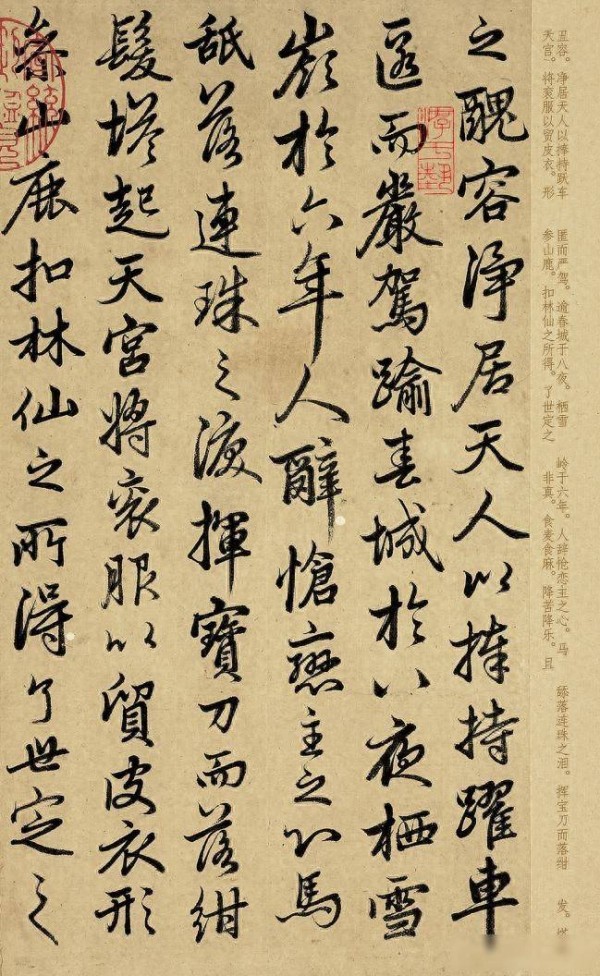 丑容。净居天人以捧持跃车 匿而严驾。逾春城于八夜。栖雪 岭于六年。人辞怆恋主之心。马 舐落连珠之泪。挥宝刀而落绀 发。塔
天宫。将衮服以贸皮衣。形 参山鹿。扣林仙之所得。了世定之 非真。食麦食麻。降苦降乐。且
之醜容淨居天人以捧持躍車
匿而嚴駕踰春城於八夜栖雪
嶺於六年人辭愴戀主之心馬
舐落連珠之淚揮寶刀而落紺
髮塔起天宮將衮服以貿皮衣形
參山鹿扣林仙之所得了世定之